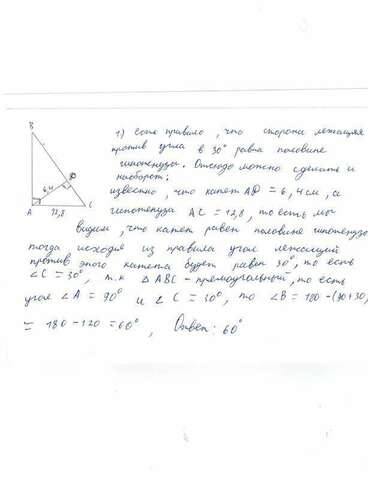 B
D
6,4
A
12,8
C
1) есть правило, что сторона лежащая
против угла в 30° равна половине
гипотенузы. Отсюда можно сделать и
наоборот:
известно, что катет AD = 6,4 см, а
гипотенуза AC = 12,8, то есть мы
видим, что катет равен половине гипотенузы
тогда исходя из правила угол лежащий
против этого катета будет равен 30°, то есть
∠C = 30°, т.к △ ABC - прямоугольный, то есть
угол ∠A = 90° и ∠C = 30°, то ∠B = 180 - (90+30)
= 180 - 120 = 60°, Ответ: 60°